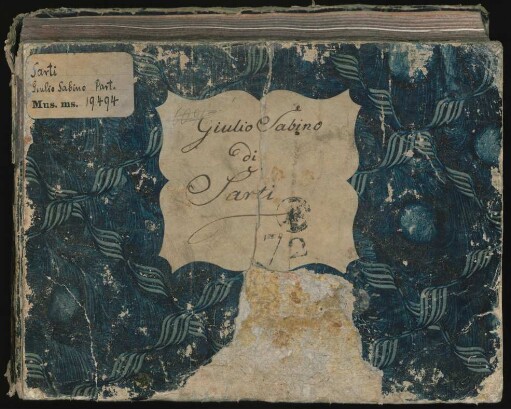 Sarti
Giulio Sabino Part.
Mus. ms. 19494
Giulio Sabino
di
Sarti